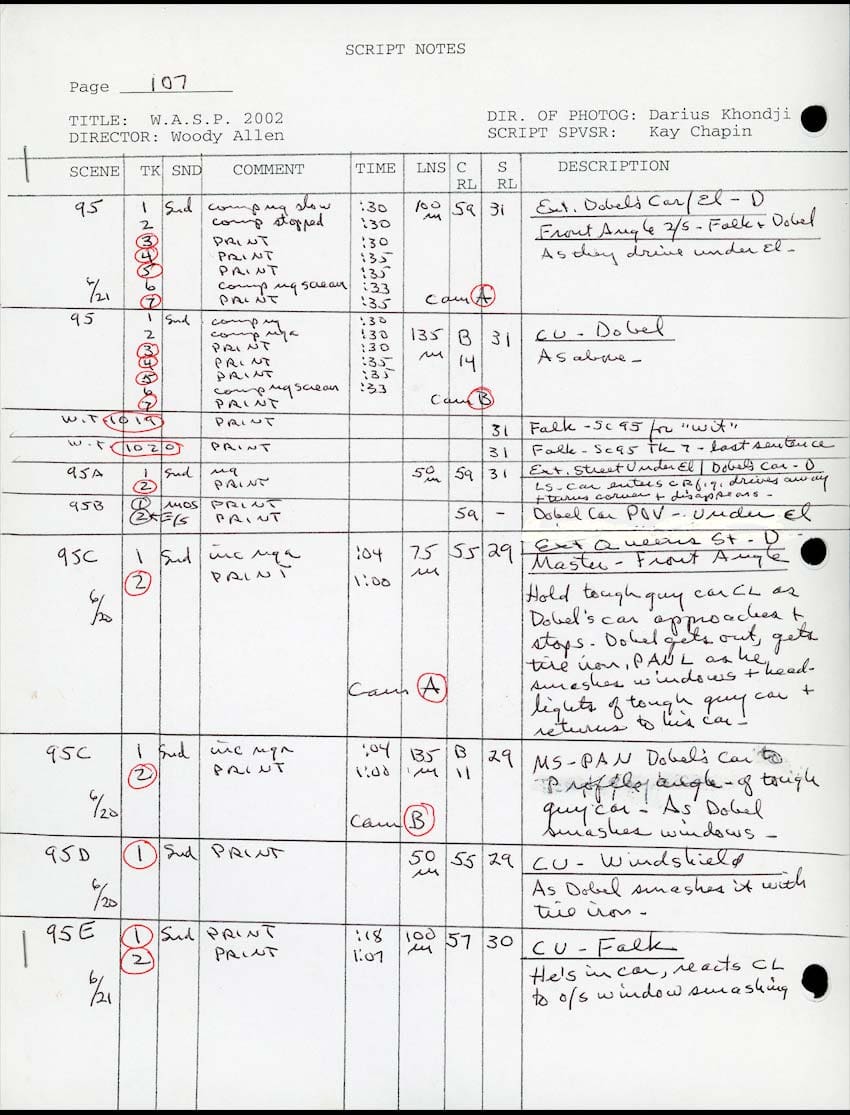 SCRIPT NOTES
Page 107
TITLE: W.A.S.P. 2002 DIR. OF PHOTOG: Darius Khondji
DIRECTOR: Woody Allen SCRIPT SPVSR: Kay Chapin
SCENE TK SND COMMENT TIME LNS C RL S RL DESCRIPTION
95 1 Snd comp ng slow :30 100 m 59 31 Ext. Dobel's Car/El - D
2 comp stopped :30 Front Angle 2/S - Falk + Dobel
3 PRINT :30 As they drive under El -
4 PRINT :35
5 PRINT :35
6 comp ng scream :33
6/21 7 PRINT :35 Cam A
95 1 Snd comp ng :30 135 m B 14 31 CU - Dobel
2 comp nga :30 As above -
3 PRINT :30
4 PRINT :35
5 PRINT :35
6 comp ng scream :33
7 PRINT Cam B
W.T 1019 PRINT 31 Falk - Sc 95 for "wit"
W.T 1020 PRINT 31 Falk - Sc95 Tk 7 - last sentence
95A 1 Snd ng 50 m 59 31 Ext. Street Under El / Dobel's Car - D
2 PRINT LS - Car enters C R f.g. drives away
+ turns corner + disappears -
95B 1 MOS PRINT 59 - Dobel Car POV - Under El
2 E/S PRINT
95C 1 Snd inc nga :04 75 m 55 29 Ext Queens St - D
2 PRINT 1:00 Master - Front Angle
6/20 Hold tough guy car CL as
Dobel's car approaches +
stops - Dobel gets out, gets
tire iron, PAN L as he
smashes windows + head-
Cam A lights of tough guy car +
returns to his car -
95C 1 Snd inc nga :04 135 m B 11 29 MS - PAN Dobel's Car to
2 PRINT 1:00 Profile angle - of tough
6/20 guy car - As Dobel
Cam B smashes windows -
95D 1 Snd PRINT 50 m 55 29 CU - Windshield
6/20 As Dobel smashes it with
tire iron -
95E 1 Snd PRINT :18 100 m 57 30 CU - Falk
2 PRINT 1:07 He's in car, reacts CL
6/21 to o/s window smashing